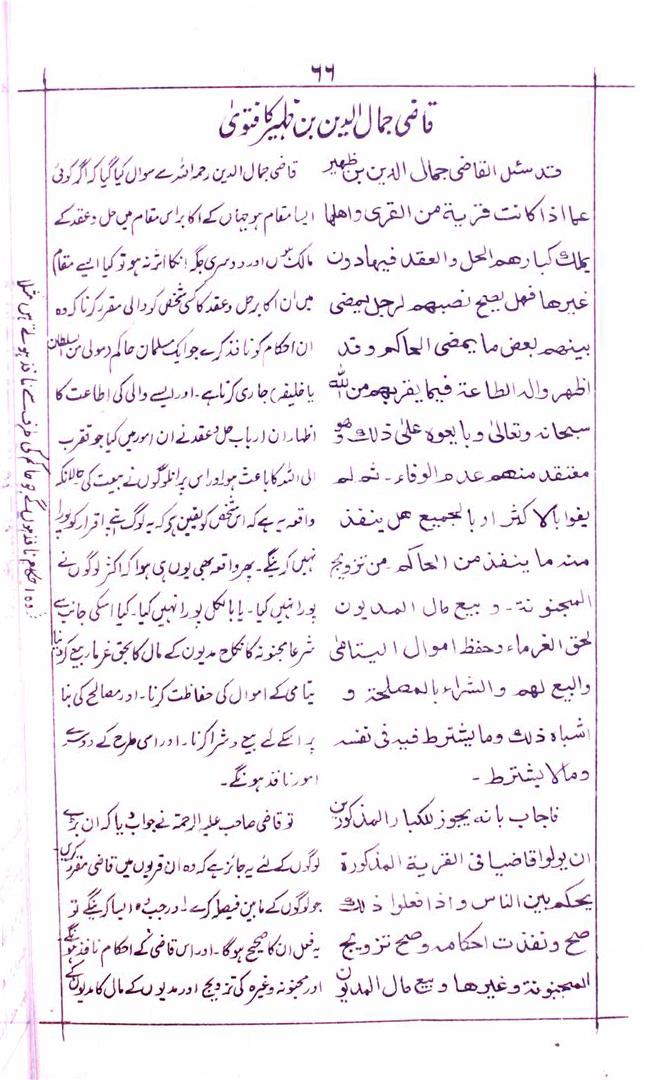 ٦٦
قاضی جمال الدین بن ظہیر کا فتویٰ
قد سئل القاضی جمال الدین بن ظهیر
عما اذا کانت قریة من القری واهلها
یملك کبارهم الحل والعقد فیها دون
غیرها فهل یصح نصبهم لرجل یمضی
بینهم بعض ما یمضی الحاکم وقد
اظهر والہ الطاعة فیما یقربهم من الله
سبحانه وتعالیٰ وبایعوه علیٰ ذلك وهو
معتقد منهم عدم الوفاء۔ ثم لم
یفوا بالاکثر او بالجمیع هل ینفذ
منه ما ینفذ من الحاکم من تزویج
المجنونة۔ وبیع مال المدیون
لحق الغرماء وحفظ اموال الیتامیٰ
والبیع لهم والشراء بالمصلحة و
اشباه ذلك وما یشترط فیه فی نفسه
وما لا یشترط۔
فاجاب بانه یجوز للکبار المذکورین
ان یولوا قاضیا فی القریة المذکورة
یحکم بین الناس واذا فعلوا ذلك
صح ونفذت احکامه وصح تزویج
المجنونة وغیرها وبیع مال المدیون
قاضی جمال الدین رحمہ اللہ سے سوال کیا گیا کہ اگر کوئی
ایسا مقام ہو جہاں کے اکابر اس مقام میں حل وعقد کے
مالک ہیں اور دوسری جگہ انکا اثر نہ ہو تو کیا ایسے مقام
میں ان اکابر حل وعقد کا کسی شخص کو والی مقرر کرنا کہ وہ
ان احکام کو نافذ کرے جو ایک مسلمان حاکم (مولی من السلطان
یا خلیفہ) جاری کرتا ہے۔ اور ایسے والی کی اطاعت کا
اظہار ان ارباب حل وعقد نے ان امور میں کیا جو تقرب
الی اللہ کا باعث ہو اور اس پر ان لوگوں نے بیعت کی حالانکہ
واقعہ یہ ہے کہ اس شخص کو یقین ہو کہ یہ لوگ اپنے اقرار کو پورا
نہیں کرینگے۔ پھر واقعہ بھی یوں ہی ہوا کہ اکثر لوگوں نے
پورا نہیں کیا۔ یا بالکل پورا نہیں کیا۔ کیا اسکی جانب سے
شرعا مجنونہ کا نکاح مدیون کے مال کا بحق غرما بیع کردینا
یتامی کے اموال کی حفاظت کرنا۔ اور مصالح کی بنا
پر انکے لئے بیع وشرا کرنا۔ اور اسی طرح کے دوسرے
امور نافذ ہونگے۔
تو قاضی صاحب علیہ الرحمۃ نے جواب دیا کہ ان بڑے
لوگوں کے لئے یہ جائز ہے کہ وہ ان قریوں میں قاضی مقرر کریں
جو لوگوں کے مابین فیصلہ کرے۔ اور جب وہ ایسا کرینگے تو
یہ فعل ان کا صحیح ہوگا۔ اور اس قاضی کے احکام نافذ ہونگے
اور مجنونہ وغیرہ کی تزویج اور مدیوں کے مال کا مدیوں کے
وہ احکام نافذ ہوں گے جو حاکم کی طرف سے نافذ ہوتے ہیں مثلا